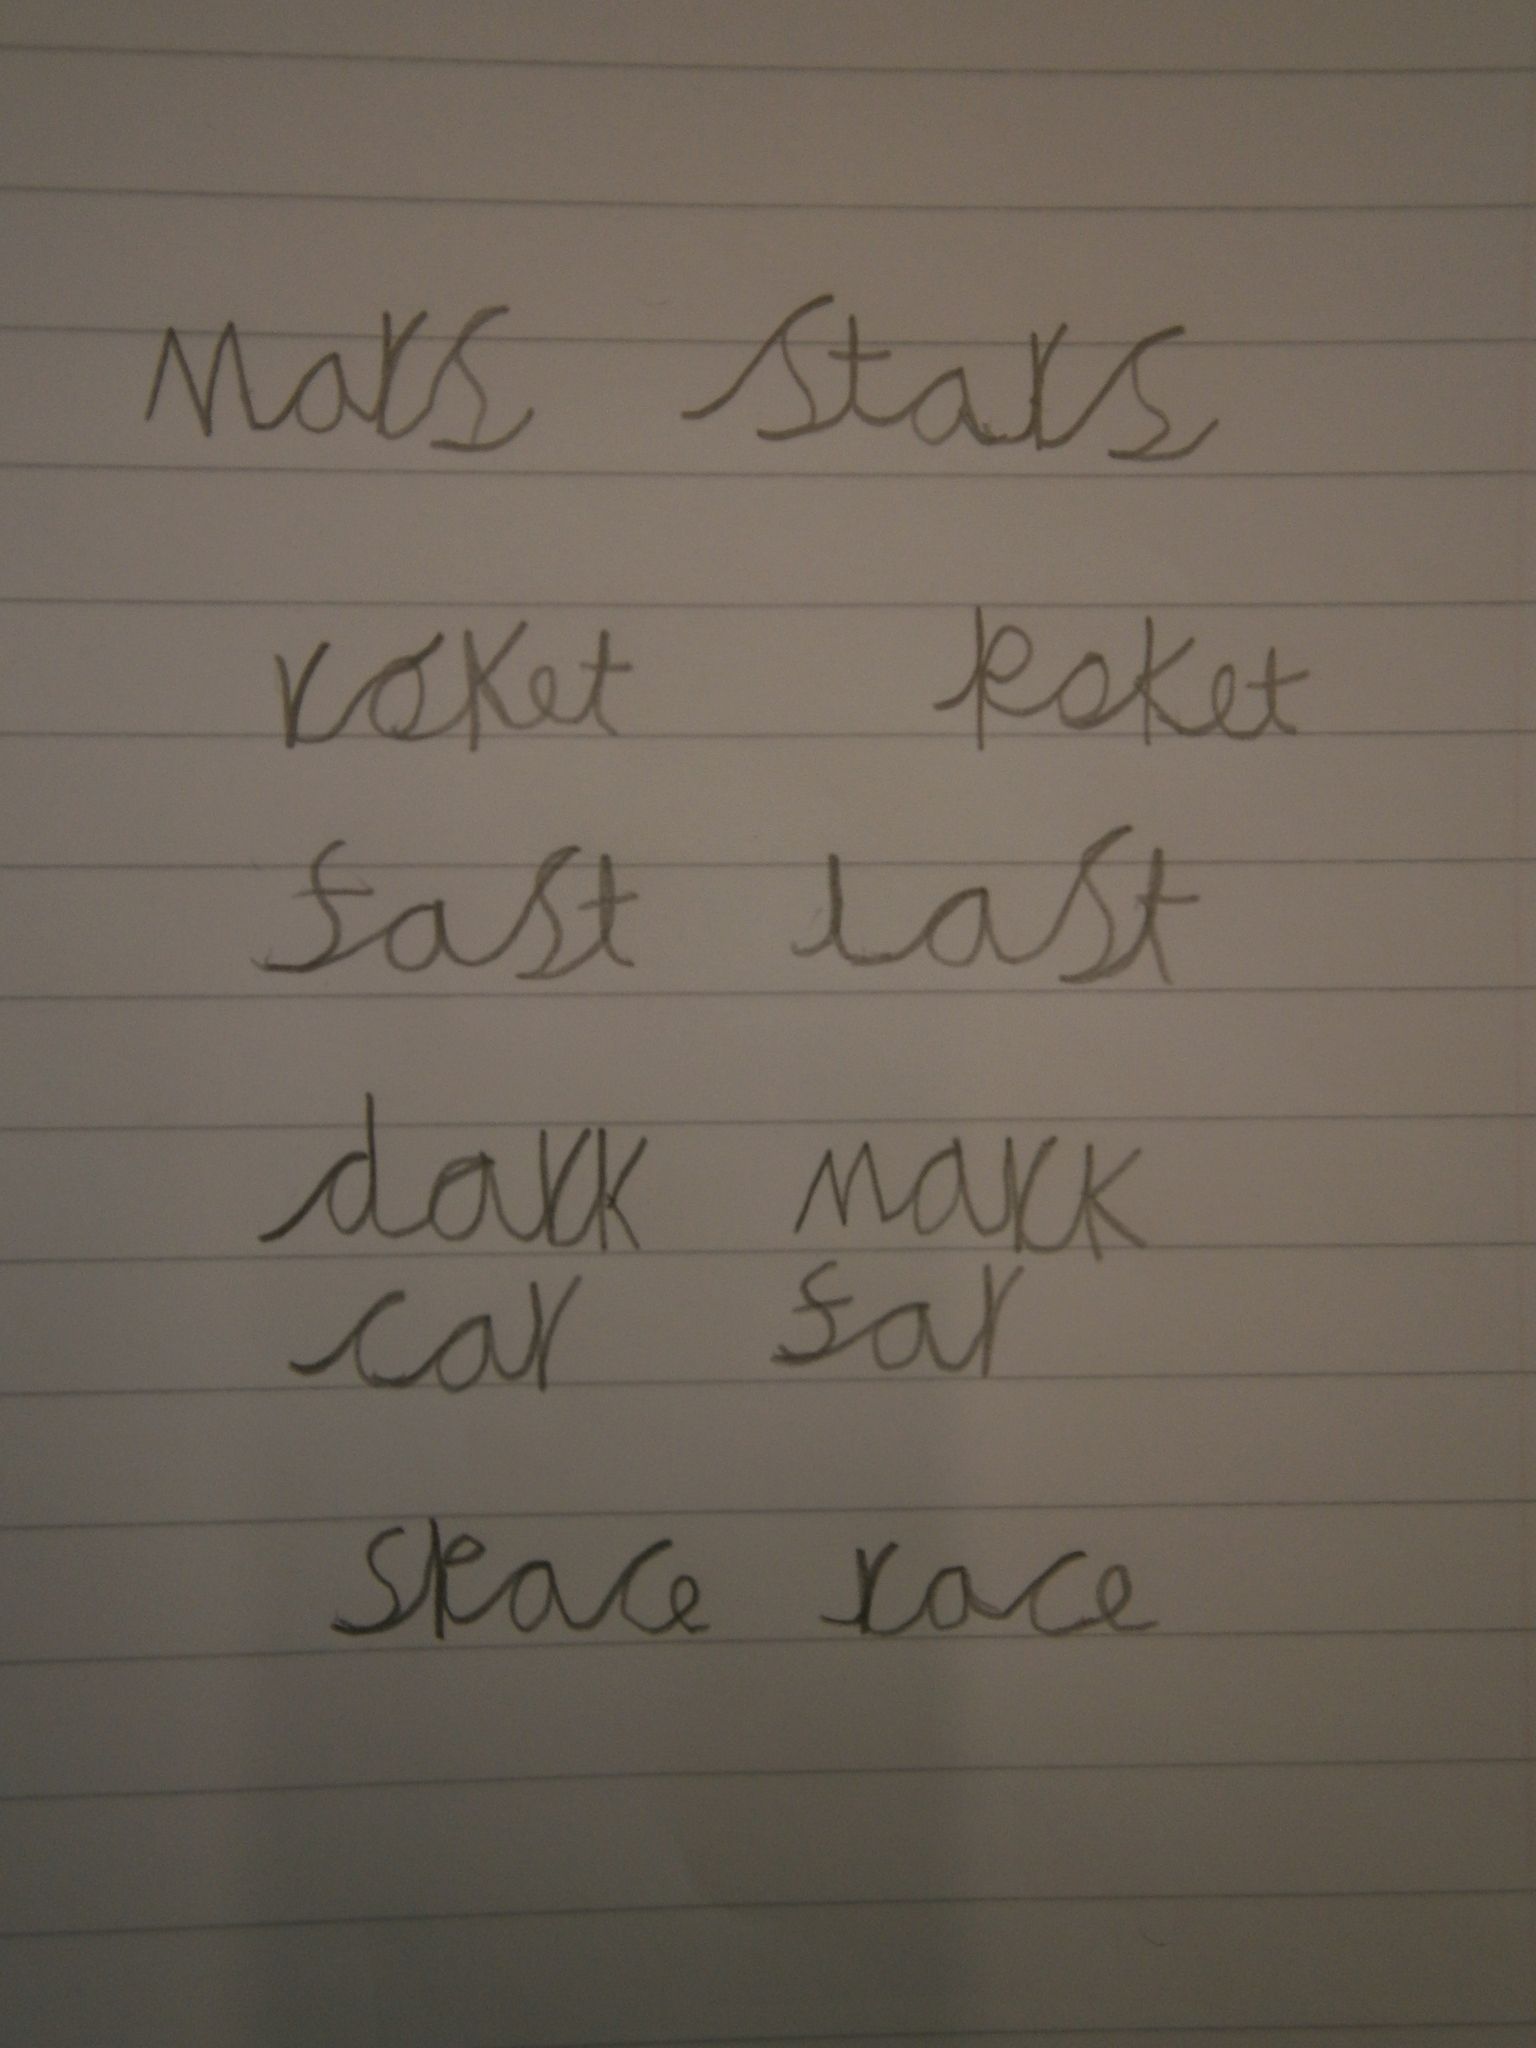 Mars stars
roket poket
fast last
dark mark
car far
space race